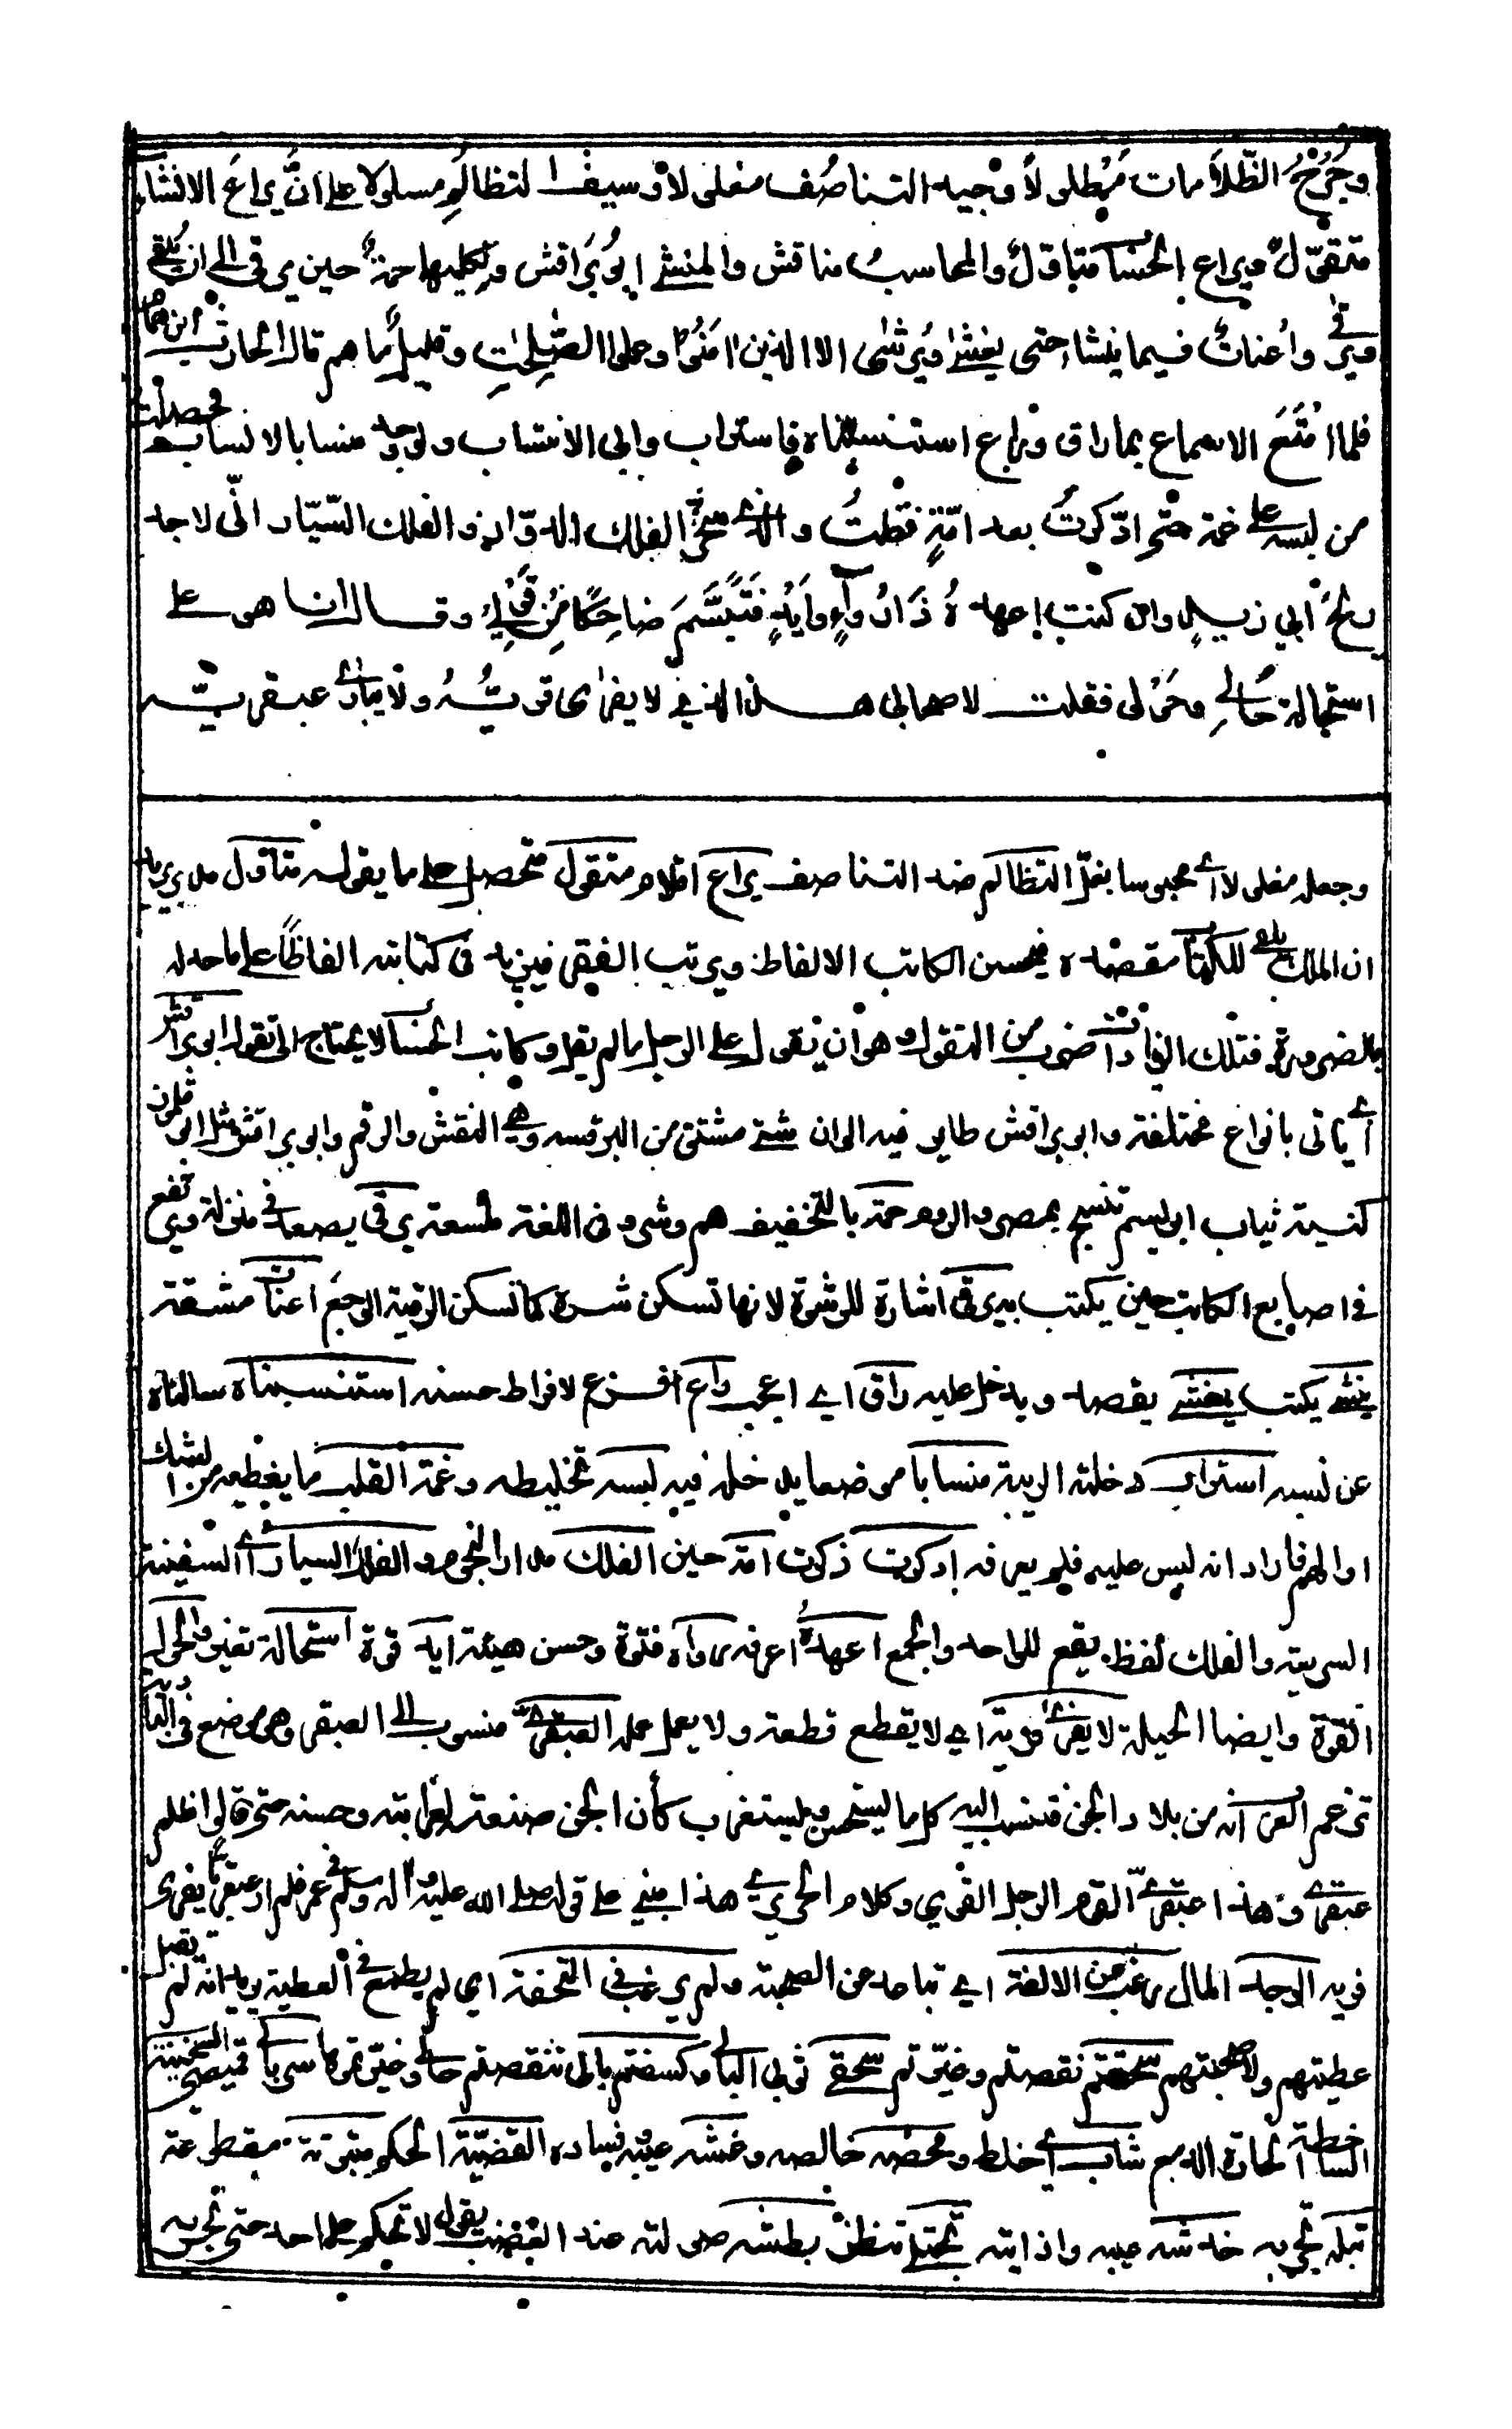 وجُرْحُ الظّلامات مَطلولا وجيد التناصُف مغلولا وسيف التظالُم مسلولا على انّ يراعَ الانشاء
متقوّل ويراع الحساب متاوّل والمحاسب مناقش والمنشئ ابو بَراقش ولكليهما حمة حين يرقى الى ان يُلقى
ويُرقى واِعنات فيما ينشأ حتى يغشى ويُرشى الا الذين اٰمَنُوا وعملوا الصّٰلِحٰتِ وقليل مّا هم قال الحارث بن همام
فلما اَمْتَعَ الاسماع بما راق وراع استنسبناه فاستراب وابى الانتساب ولو وجد منسابا لانساب فحصلت
من لبسه على غمة حتى ادّكرتُ بعد امّةٍ فقلتُ والذي سخّر الفلك الدوّار والفلك السيّار انّى لاجد
ريحُ ابي زيدٍ وان كنت اعهدهُ ذَا رُواءٍ واَيْدٍ فَتَبَسَّمَ ضاحِكًا مِّن قَولِي وقال انا هو على
استحالة حَالي وحَوْلى فقلت لاصحابى هذا الذي لا يفرى فريُّهُ ولا يبارى عبقريّه
وجعله مغلولا اى محبوسا بغلّ التظالم ضد التناصف يراع اقلام متقول متحصل على ما يقوله متاول ما يريد
ان الملك يلقى للكتّاب مقصده فيحسن الكاتب الالفاظ ويرتب الفقر فيزيد فى كتابته الفاظًا على ما حد له
بالضرورة فتلك الزيادات ضرب من التقول وهو ان تقول على الرجل ما لم يقل وكاتب الحساب لا يحتاج الى تقول ابو براقش
اى ياتى بانواع مختلفة وابو براقش طاير فيه الوان شتى مشتق من البرقشة وهى النقش والرقم وابو براقش مثل ابى قلمون
كنية ثياب ابريسم تنسج بمصر والروم حمة بالتخفيف سم وشر وفى اللغة لسعة يرقى يصعد فى منزلة ويرتفع
فى اصابع الكاتب حين يكتب يرقى اشارة للرشوة لانها تسكن شره كما تسكن الرقية الوجع اعنات مشقة
ينشئ يكتب يغشى يقصد ويدخل عليه راق اى اعجب راع افزع لافراط حسنه استنسبناه سالناه
عن نسبه استراب دخلته الريبة منسابا موضعا يدخل فيه لبسه تخليطه وغمة القلب ما يغطيه من الشك
او الهم فاراد انه لبس عليه فلم يعرفه ادكرت ذكرت امة حين الفلك مدار النجوم والفلك السيار اى السفينة
السريعة والفلك لفظ يقع للواحد والجمع اعهده اعرفه رواء فتوة وحسن هيئة ايد قوة استحالة تغير والحول
القوة وايضا الحيلة لا يفرى فريه اى لا يقطع قطعه ولا يعمل عمله العبقرى منسوب الى العبقر وهو موضع فى البادية
تزعم العرب انه من بلاد الجن فتنسب اليه كل ما يستحسن ويستغرب كأن الجن صنعته لغرابته وحسنه حتى قالوا ظلم
عبقرى وهذا عبقرى القوم الرجل القوي وكلام الحريري هذا مبني على قوله صلى الله عليه واله وسلم فى عمر فلم ار عبقريا يفرى
فريه الوجد المال رغب عن الالفة اى تباعد عن الصحبة ولم يرغب فى التحفة اي لم يطمع فى العطية يريد انه لم يقبل
عطيتهم ولا صحبتهم سحقتم نقصتم وضيّرتم سحقى ثوبى البالى وكسفتم بالى نقصتم حالى وغيرتموها سربالى قميصى السخينة
الساخطة الحارة الدمع شاب اى خلط ومحضه خالصه وغشه عيبه فساده القضيّة الحكم مبتوتة مقطوعة
تبله تجربه خدشه عيبه واذايته تجتلى تنظر بطشه صولته عند الغضب يقول لا تحكم على احد حتى تجربه